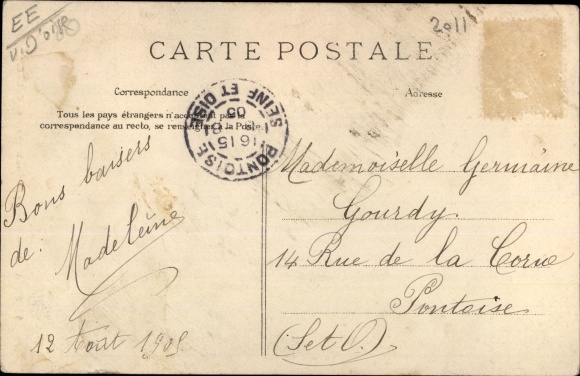 EE
V. D'oise
2011
CARTE POSTALE
Correspondance
Adresse
Tous les pays étrangers n'acceptant pas la
correspondance au recto, se renseigner à la Poste.
PONTOISE
16 15
05
SEINE ET OISE
Bons baisers
de. Madeleine
12 Aout 1905
Mademoiselle Germaine
Gourdy
14 Rue de la Corne
Pontoise
(S et O.)